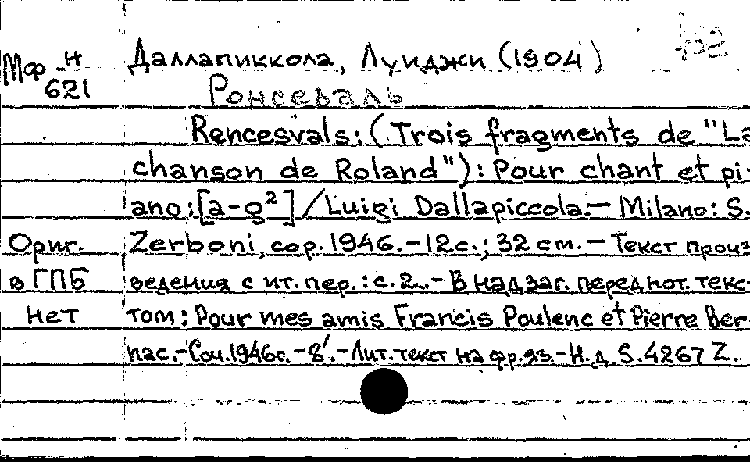 Мфр Н 621
Даллапиккола, Луиджи (1904)
Ронсеваль
Rencesvals: (Trois fragments de "La
chanson de Roland"): Pour chant et pi-
ano: [a-g²] / Luigi Dallapiccola. – Milano: S.
Ориг. Zerboni, cop. 1946. – 12с.; 32 cm. – Текст произ-
в ГПБ ведения с ит. пер.: с. 2. – В надзаг. перед нот. текс-
нет том: Pour mes amis Francis Poulenc et Pierre Ber-
nac. – Соч. 1946г. – 8'. – Лит. текст на фр. яз. – Н.д. S. 4267 Z.